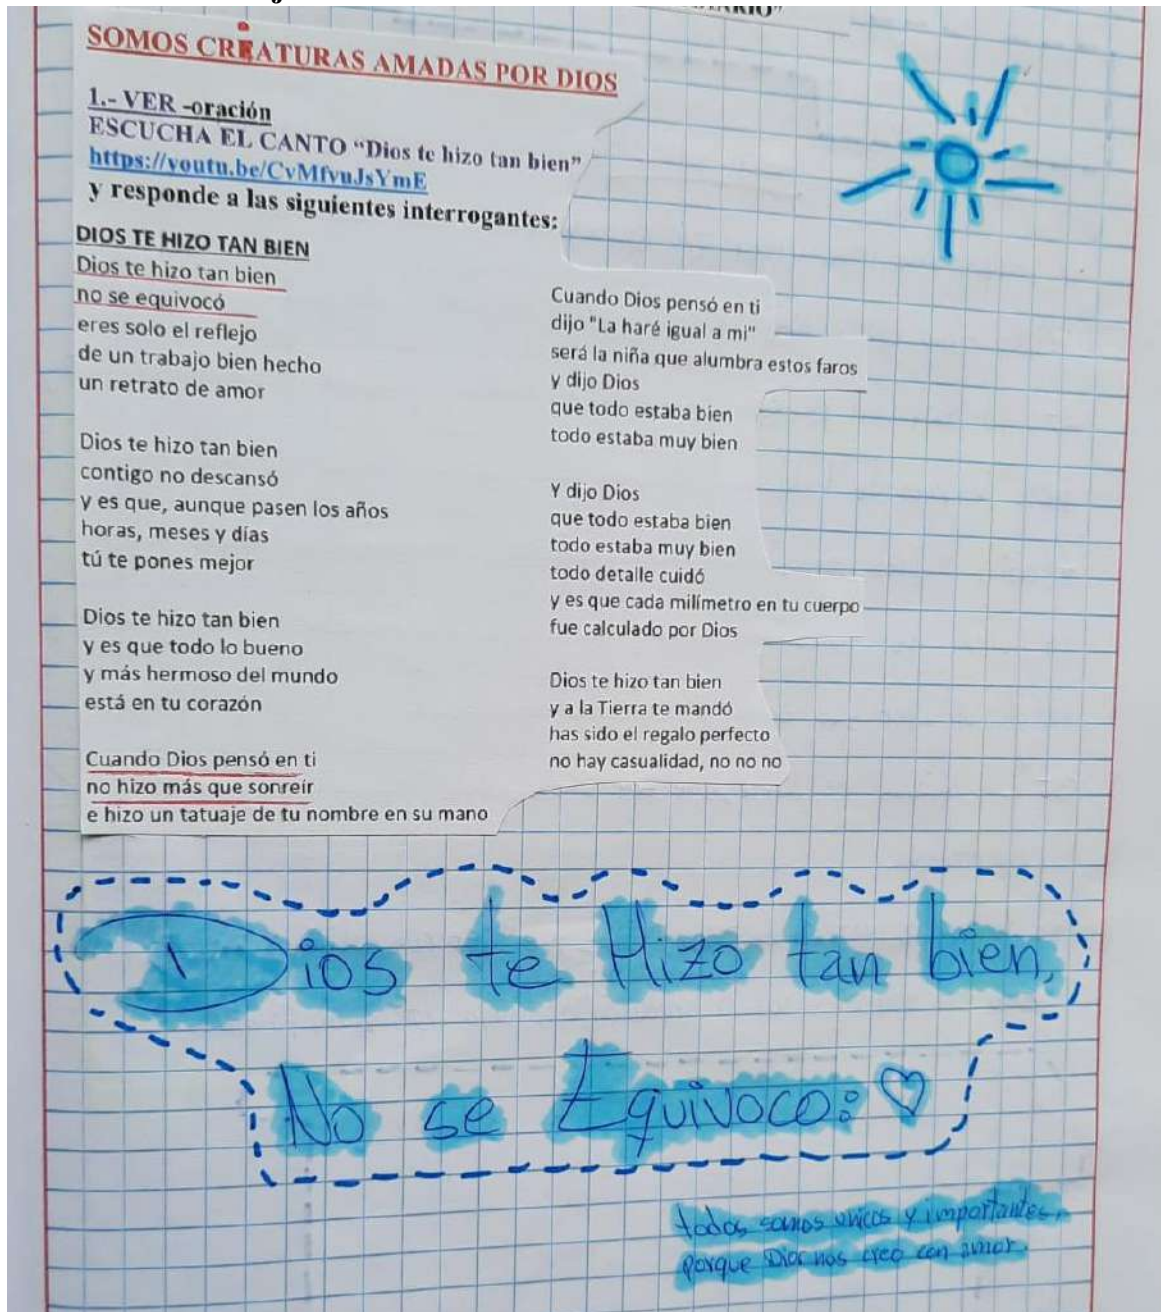 SOMOS CRiATURAS AMADAS POR DIOS
1.- VER -oración
ESCUCHA EL CANTO “Dios te hizo tan bien”
https://youtu.be/CvMfvuJsYmE
y responde a las siguientes interrogantes:
DIOS TE HIZO TAN BIEN
Dios te hizo tan bien
no se equivocó
eres solo el reflejo
de un trabajo bien hecho
un retrato de amor
Dios te hizo tan bien
contigo no descansó
y es que, aunque pasen los años
horas, meses y días
tú te pones mejor
Dios te hizo tan bien
y es que todo lo bueno
y más hermoso del mundo
está en tu corazón
Cuando Dios pensó en ti
no hizo más que sonreír
e hizo un tatuaje de tu nombre en su mano
Cuando Dios pensó en ti
dijo "La haré igual a mi"
será la niña que alumbra estos faros
y dijo Dios
que todo estaba bien
todo estaba muy bien
Y dijo Dios
que todo estaba bien
todo estaba muy bien
todo detalle cuidó
y es que cada milímetro en tu cuerpo
fue calculado por Dios
Dios te hizo tan bien
y a la Tierra te mandó
has sido el regalo perfecto
no hay casualidad, no no no
Dios te Hizo tan bien,
No se Equivoco:
todos somos unicos y importantes,
porque Dios nos creo con amor.